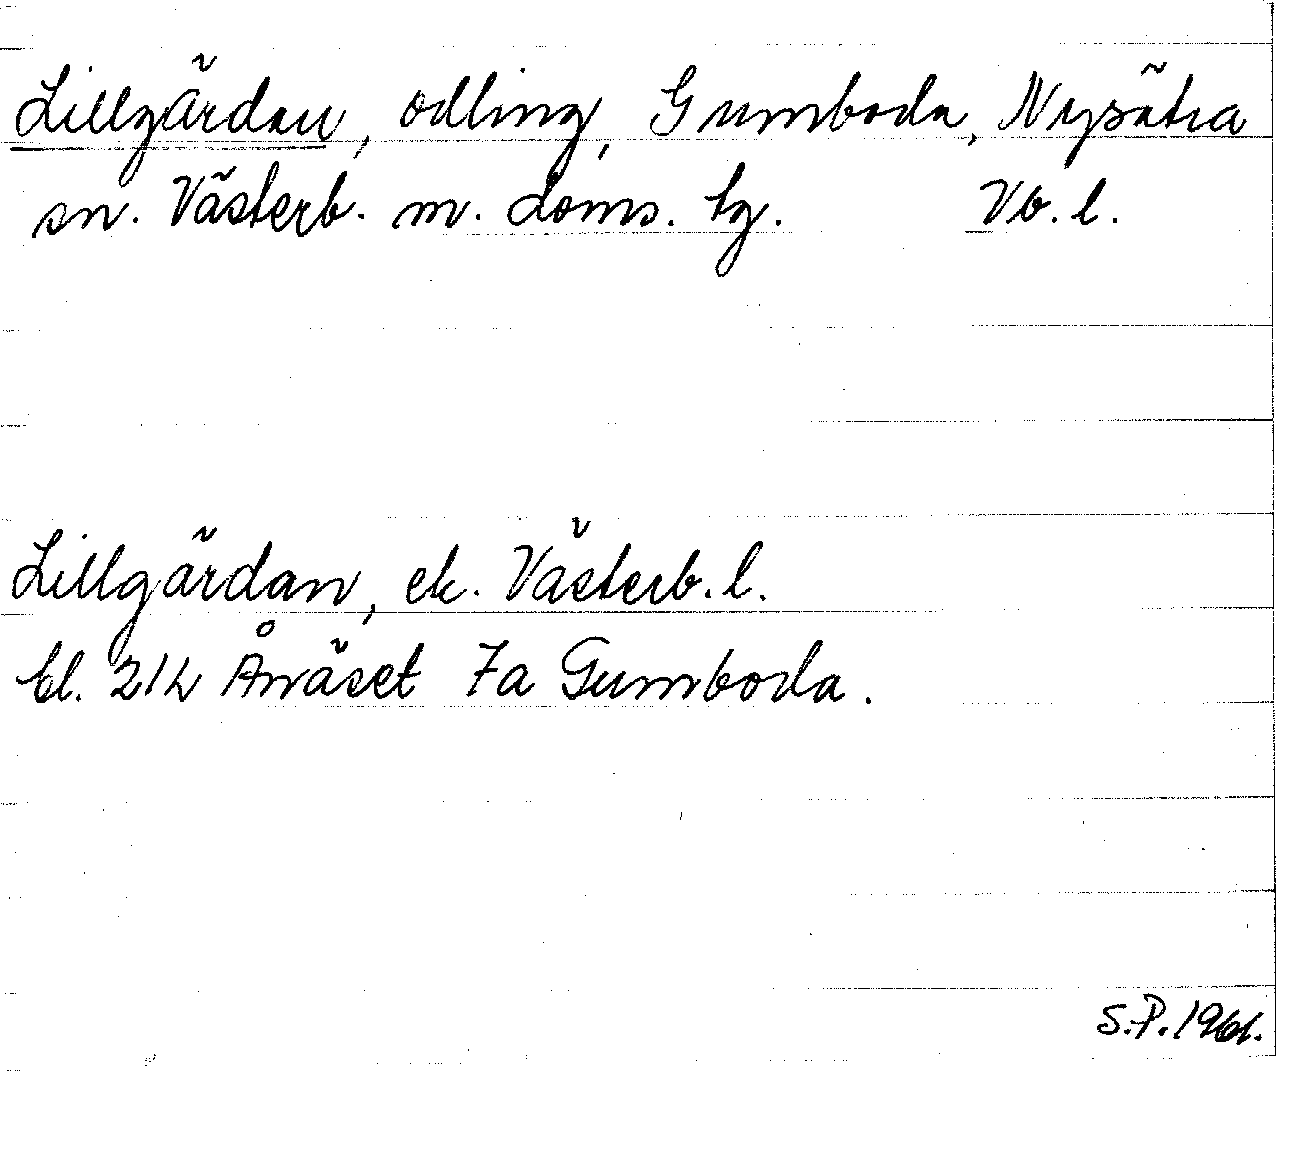 Lillgärdan, odling, Gumboda, Nysätra
sn. Västerb. m. doms. tg. Vb. l.
Lillgärdan, ek. Västerb. l.
bl. 21h Ånäset 7a Gumboda.
S.P. 1961.